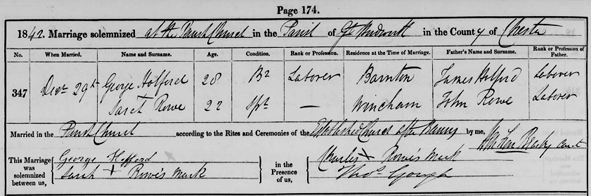 Page 174.
1842. Marriage solemnized at the Parish Church in the Parish of Gt Budworth in the County of Chester
No. When Married. Name and Surname. Age. Condition. Rank or Profession. Residence at the Time of Marriage. Father's Name and Surname. Rank or Profession of Father.
347 Decr 29th George Holford 28 Br Laborer Barnton James Holford Laborer
Sarah Rowe 22 Spr — Wincham John Rowe Laborer
Married in the Parish Church according to the Rites and Ceremonies of the Established Church after Banns by me,
This Marriage was solemnized between us, George Holford
Sarah X Rowe's Mark
in the Presence of us, Charles X Rowe's Mark
Thos Gough